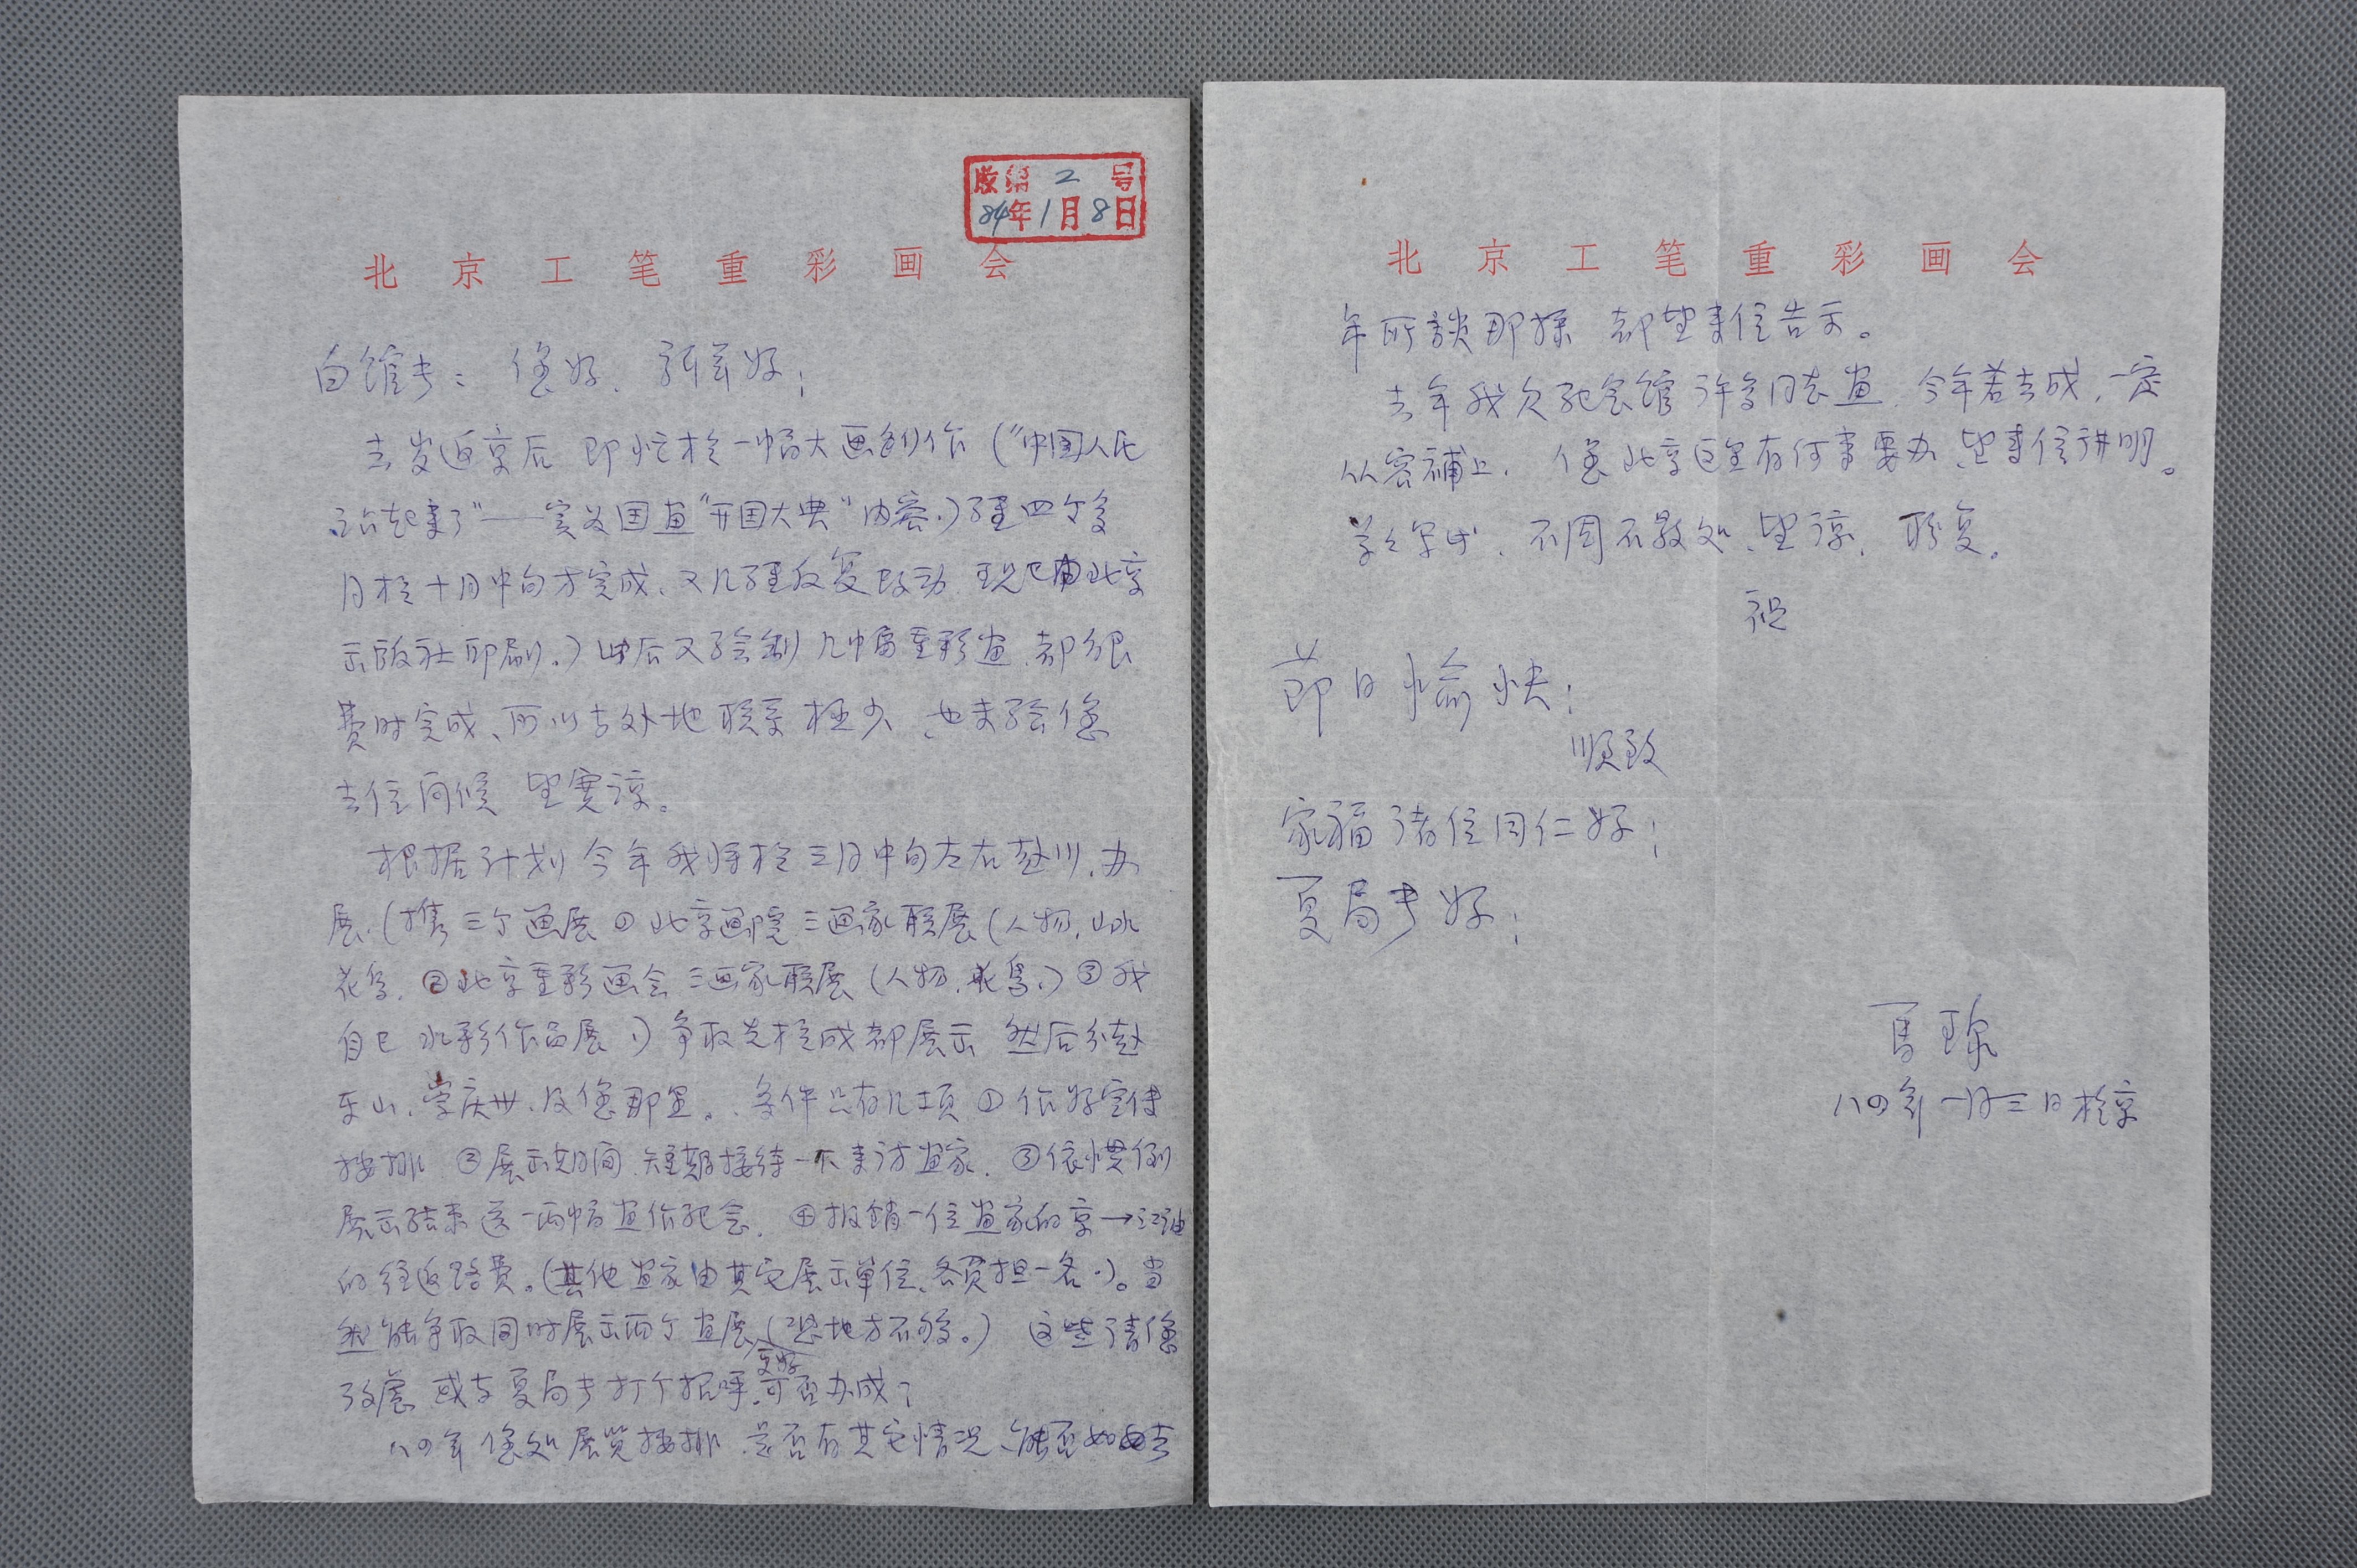 收第2号
84年1月8日
北京工笔重彩画会
白馆长：您好、新年好！
去岁返京后 即忙于一幅大画创作（“中国人民
站起来了”——实为国画“开国大典”内容.）经四个多
月于十月中旬才完成、又几经反复改动 现已由北京
出版社印刷.）此后又绘制几幅重彩画、都很
费时完成、所以与外地联系极少、也未给您
去信问候 望宽谅。
根据计划 今年我将于三月中旬左右赴川、办
展.（携三个画展①北京画院三画家联展（人物,山水
花鸟. ②北京重彩画会三画家联展（人物.花鸟.）③我
自己水彩作品展.）争取先于成都展出 然后分赴
乐山、重庆、及您那里。条件只有几项①作好宣传
按排 ②展出期间 短期接待一下来访画家. ③依惯例
展出结束送一两幅画作纪念. ④报销一位画家的京→江油
的往返路费。（其他画家由其它展出单位、各负担一名.）。当
然能争取同时展出两个画展更好（恐地方不够。） 这些请您
考虑 或与夏局长打个招呼、可否办成？
八四年 您处展览按排 是否有其它情况、能否如去
北京工笔重彩画会
年所谈那样 都望来信告示。
去年我欠纪念馆许多同志画、今年若去成，一定
从容补上. 您北京这里有何事要办、望来信讲明。
草草写出、不周不敬处、望谅. 盼复。
祝
节日愉快！
顺致
家福诸位同仁好！
夏局长好！
马琼
八四年一月三日于京